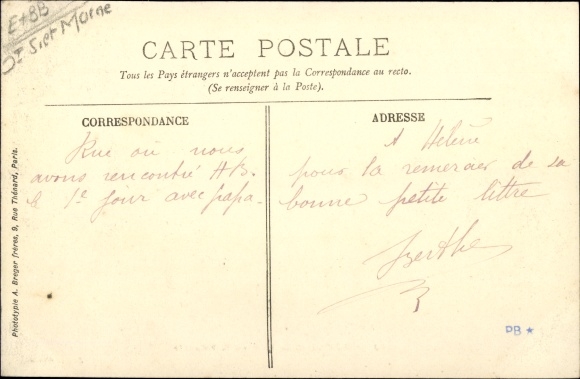 E+8B
Dt S. et Marne
CARTE POSTALE
Tous les Pays étrangers n'acceptent pas la Correspondance au recto.
(Se renseigner à la Poste).
CORRESPONDANCE
Rue où nous
avons rencontré AB.
le 1e jour avec papa.
ADRESSE
A Hélène
pour la remercier de sa
bonne petite lettre
Berthe
Phototypie A. Breger frères, 9, Rue Thénard, Paris.
PB ★